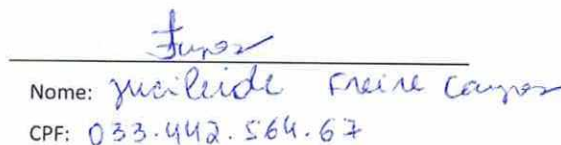 Nome: Jucileide Freire Campos
CPF: 033.442.564.67